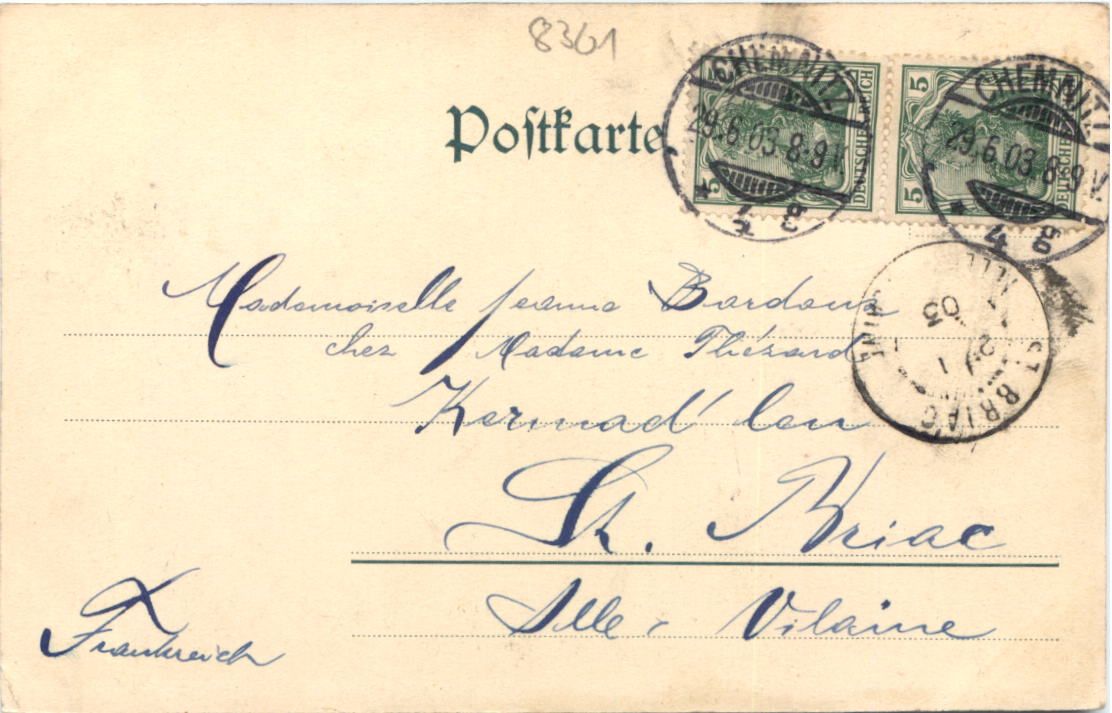 8361
Postkarte
5 5 DEUTSCHES REICH
5 5 DEUTSCHES REICH
CHEMNITZ
29.6.03.8-9V.
* 4 g
CHEMNITZ
29.6.03.8-9V.
* 4 g
ST BRIAC
1
03
Mademoiselle Jeanne Bardoux
chez Madame Thézard
Kermad'
St. Briac
Ille-Vilaine
Frankreich